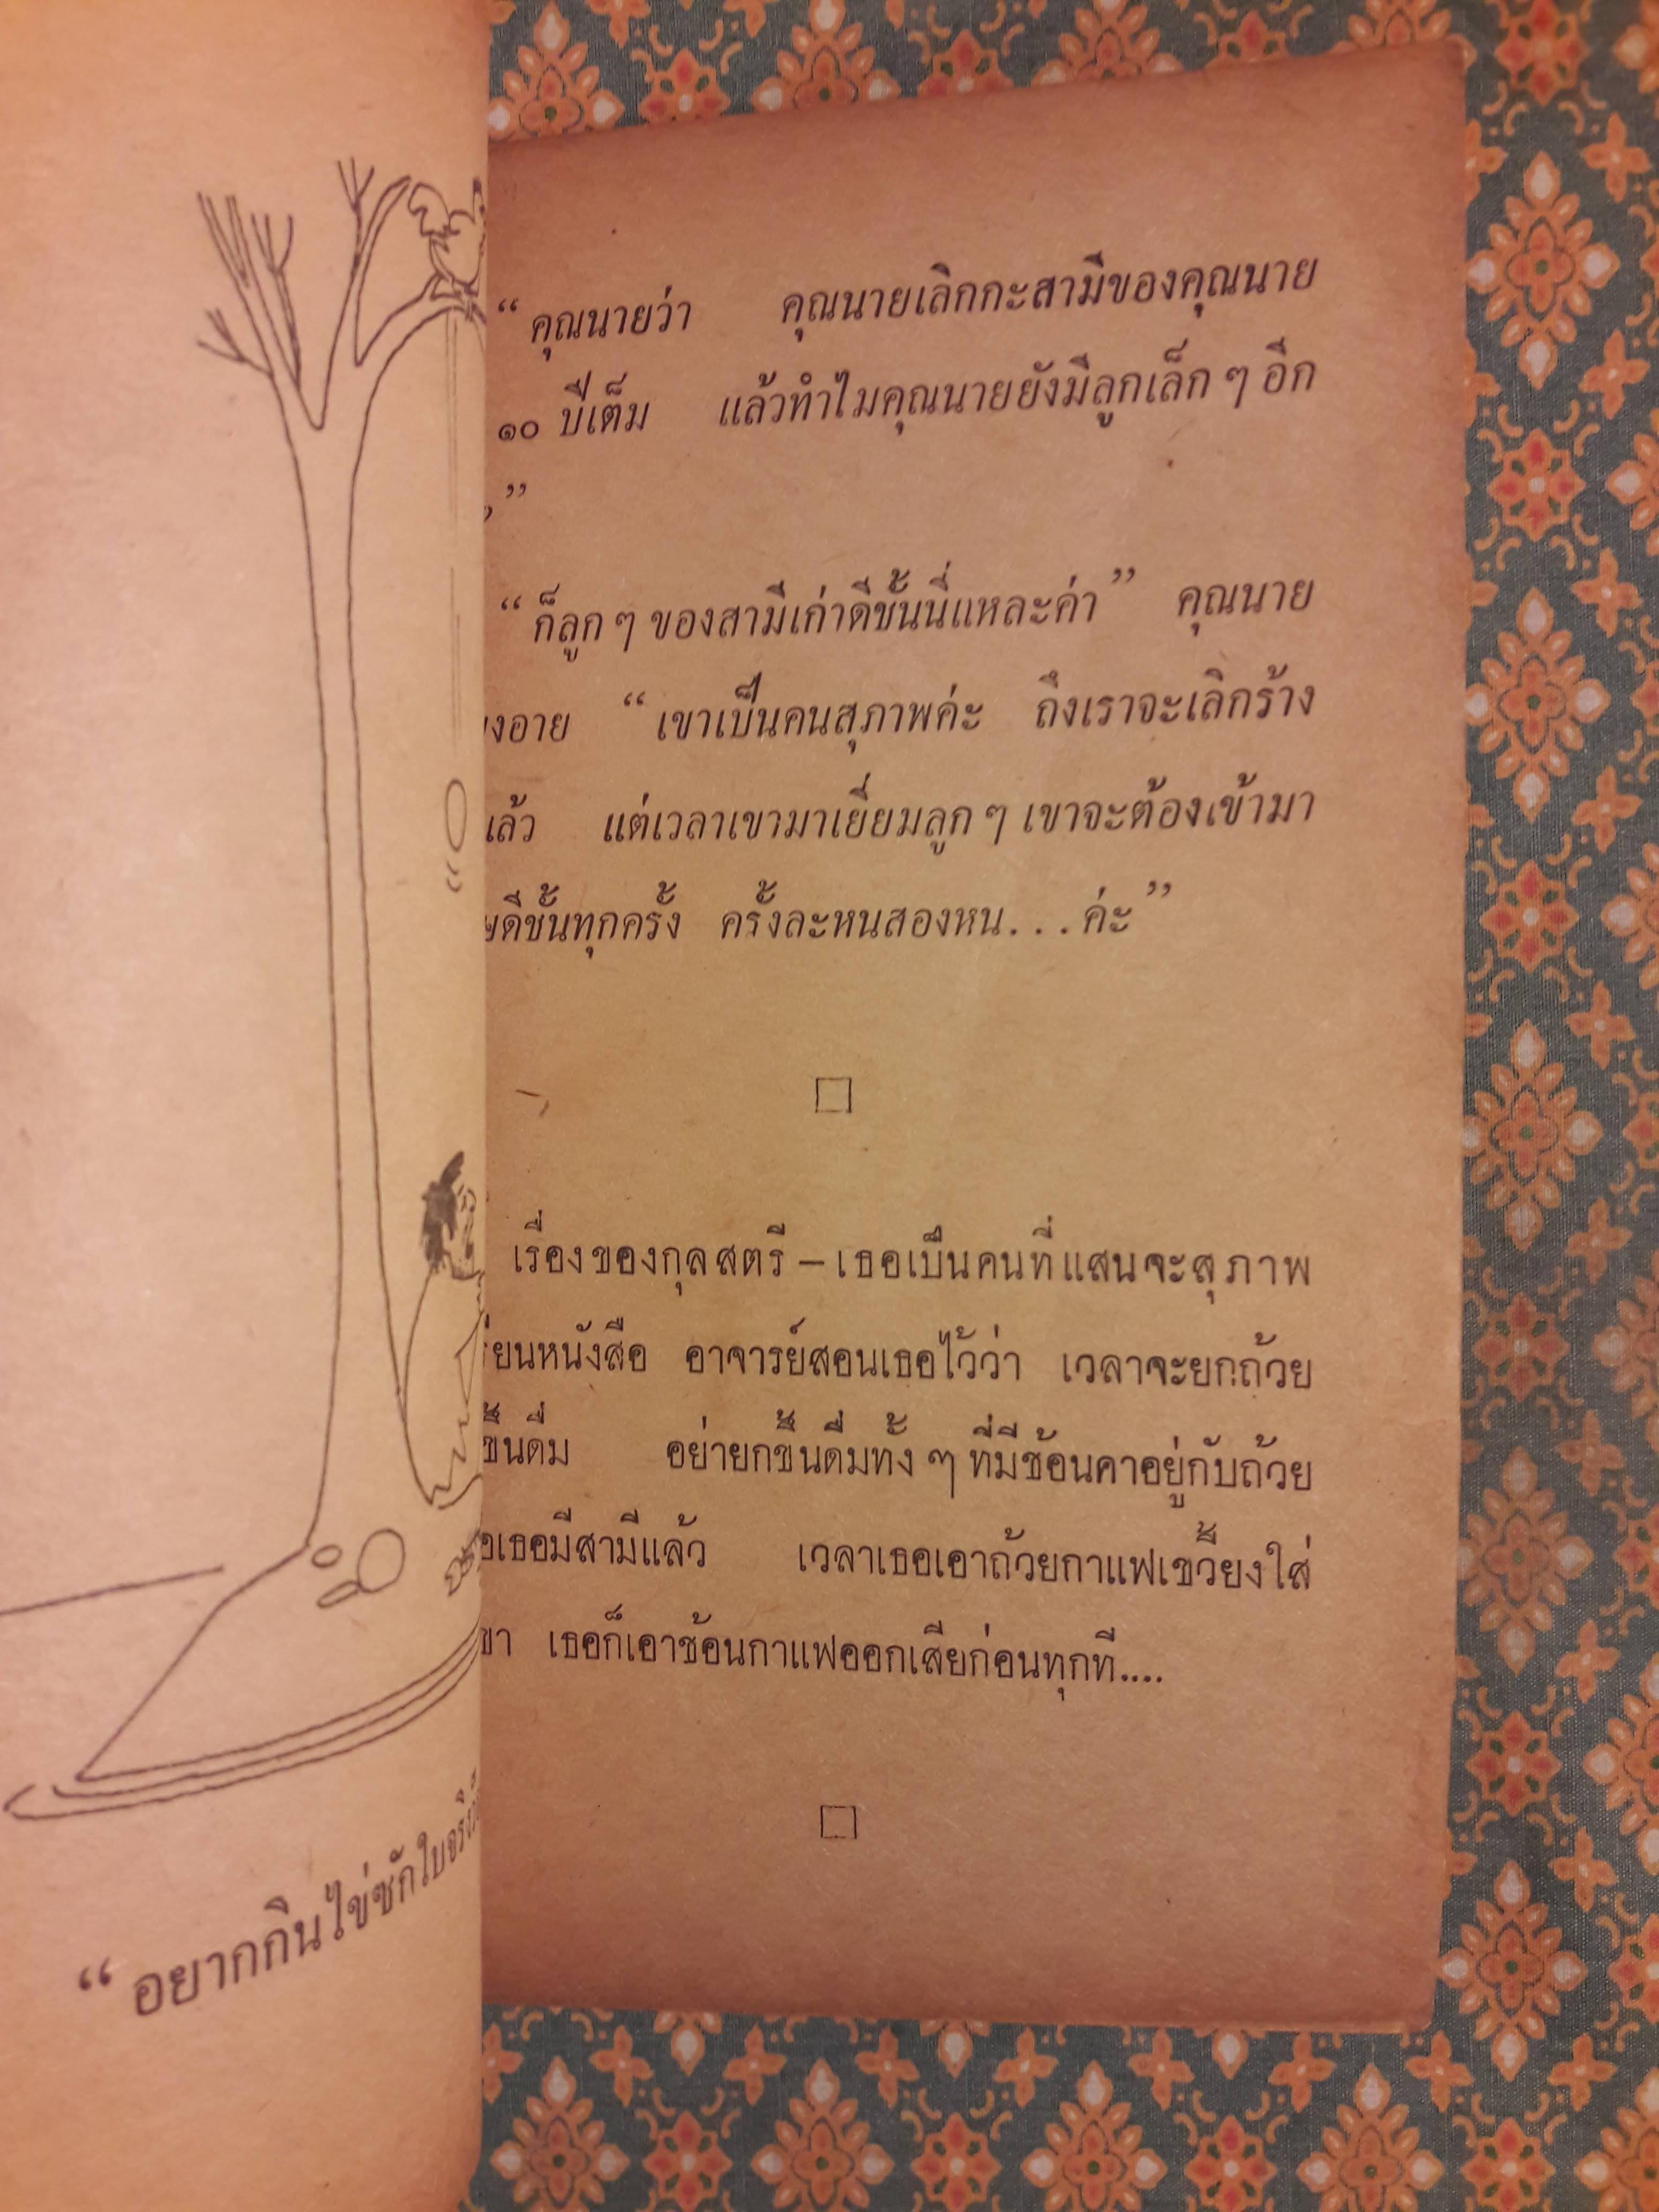 “ อยากกินไข่ซักใบ
“ คุณนายว่า คุณนายเลิกกะสามีของคุณนาย
๑๐ ปีเต็ม แล้วทำไมคุณนายยังมีลูกเล็ก ๆ อีก
”
“ ก็ลูก ๆ ของสามีเก่าดีชั้นนี่แหละค่า ” คุณนาย
งอาย “ เขาเป็นคนสุภาพค่ะ ถึงเราจะเลิกร้าง
แล้ว แต่เวลาเขามาเยี่ยมลูก ๆ เขาจะต้องเข้ามา
ดีชั้นทุกครั้ง ครั้งละหนสองหน...ค่ะ ”
เรื่องของกุลสตรี – เธอเป็นคนที่แสนจะสุภาพ
ยนหนังสือ อาจารย์สอนเธอไว้ว่า เวลาจะยกถ้วย
ขึ้นดื่ม อย่ายกขึ้นดื่มทั้ง ๆ ที่มีช้อนคาอยู่กับถ้วย
เธอมีสามีแล้ว เวลาเธอเอาถ้วยกาแฟเขวี้ยงใส่
ขา เธอก็เอาช้อนกาแฟออกเสียก่อนทุกที....